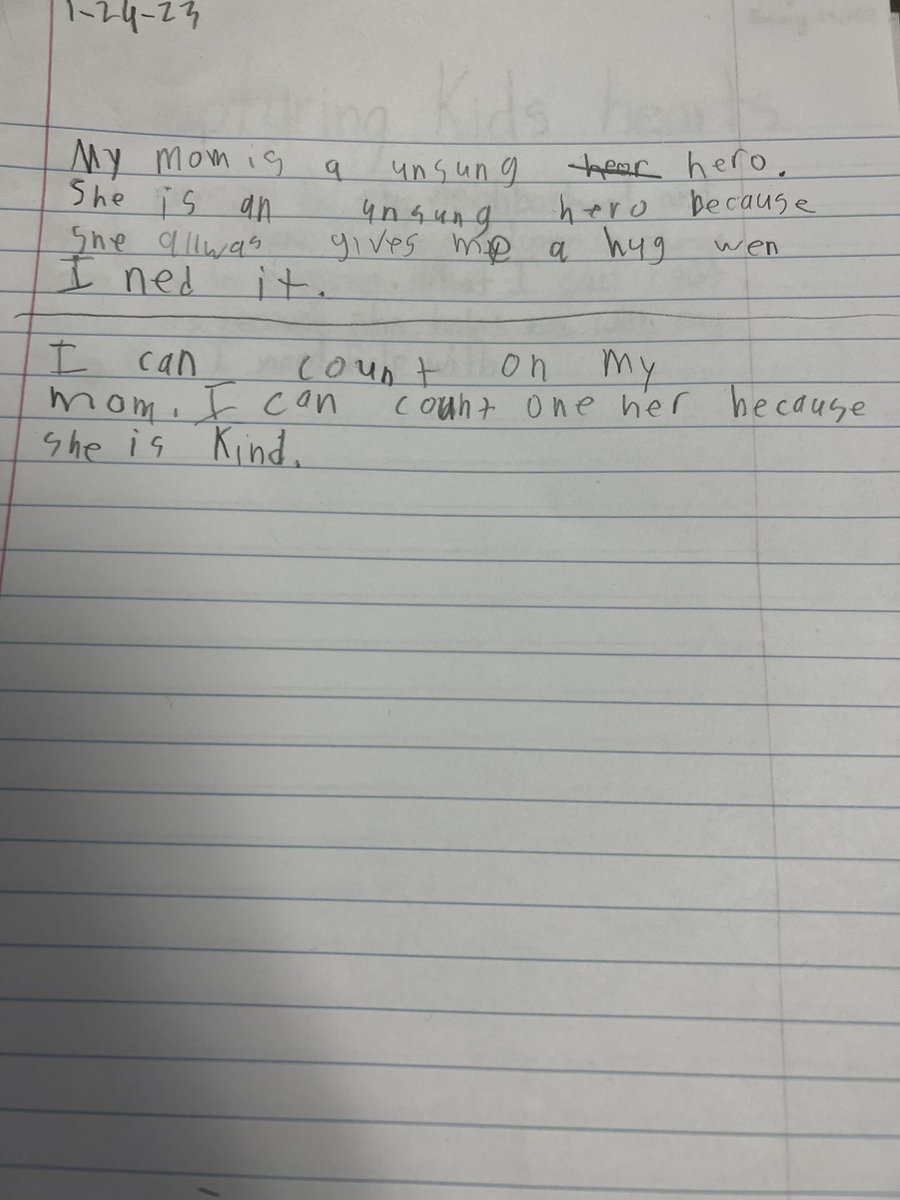 1-24-23
Kids hearts
My mom is a unsung hear hero.
She is an unsung hero because
she allwas gives me a hug wen
I ned it.
I can count on my
mom. I can count one her because
she is Kind.